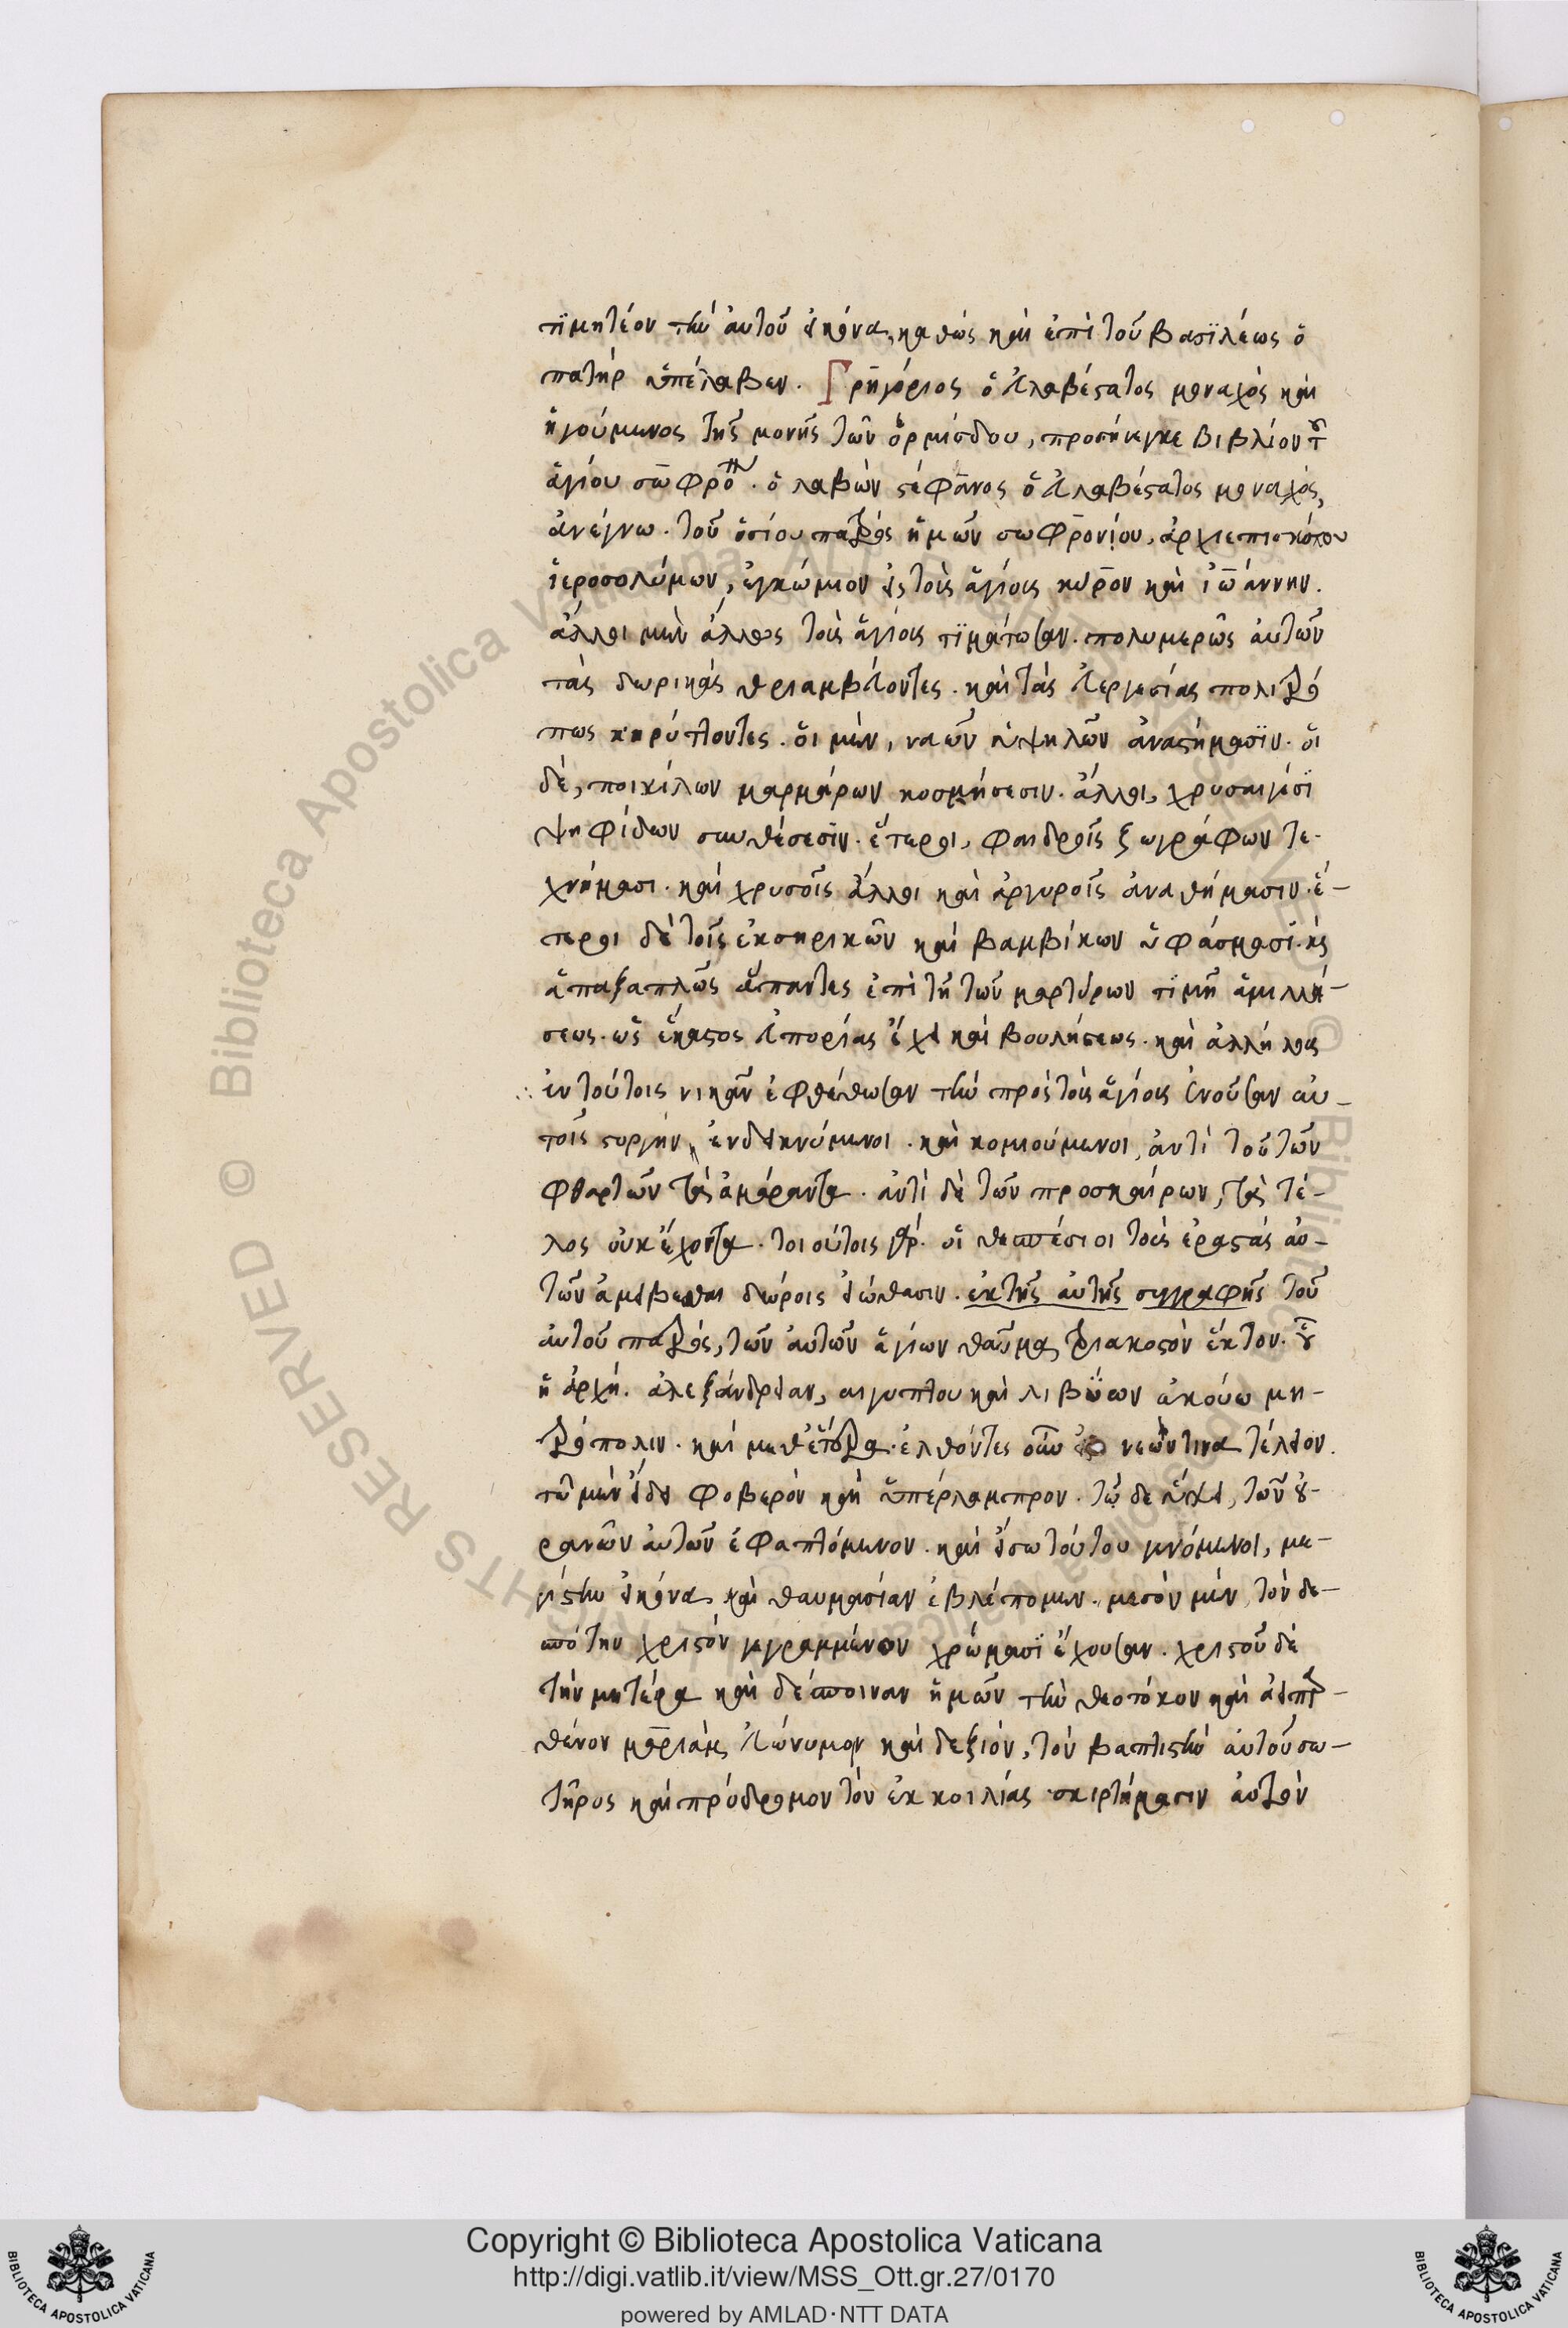 τιμητέον τὴν αὐτοῦ εἰκόνα, καθὼς καὶ ἐπὶ τοῦ βασϊλέως ὁ
πατὴρ ὑπέλαβεν. Γρηγόριος ὁ εὐλαβέστατος μοναχὸς καὶ
ἡγούμενος τῆς μονῆς τῶν ὁρμίσδου, προσήνεγκε βιβλίον τοῦ
ἁγίου σωφρο. ὃ λαβὼν στέφανος ὁ εὐλαβέστατος μοναχός,
ἀνέγνω. τοῦ ὁσίου πατρὸς ἡμῶν σωφρονίου, ἀρχιεπισκόπου
ἱεροσολύμων, ἐγκώμιον εἰς τοὺς ἁγίους κῦρον καὶ ἰωάννην.
ἄλλοι μὲν ἄλλως τοὺς ἁγίους τϊμάτωσαν. πολυμερῶς αὐτῶν
τὰς δωρεὰς θριαμβεύοντες. καὶ τὰς εὐεργεσίας πολυτρό
πως κηρύττοντες. οἱ μὲν, ναῶν ὑψηλῶν ἀναστήμασϊν. οἱ
δὲ, ποικίλων μαρμάρων κοσμήσεσιν. ἄλλοι, χρυσαυγέσϊ
ψηφίδων συνθέσεσϊν. ἕτεροι, φαιδροῖς ζωγράφων τε-
χνήμασι. καὶ χρυσοῖς ἄλλοι καὶ ἀργυροῖς ἀναθήμασιν. ἕ-
τεροι δὲ τοῖς ἐκ σηρικῶν καὶ βαμβίκων ὑφάσμασϊ. καὶ
ἅπαξαπλῶς ἅπαντες ἐπὶ τῇ τῶν μαρτύρων τϊμῇ ἁμιλλή-
σεως. ὡς ἕκαστος εὐπορίας ἔχει καὶ βουλήσεως. καὶ ἀλλήλους
ἐν τούτοις νικᾶν ἐφθέσθωσαν τὴν πρὸς τοὺς ἁγίους ἐνοῦσαν αὐ-
τοῖς στοργὴν, ἐνδεικνύμενοι. καὶ κομιούμενοι, ἀντὶ τούτων
φθαρτῶν τὰ ἀμάραντα. ἀντὶ δὲ τῶν προσκαίρων, τὰ τέ-
λος οὐκ ἔχοντα. τοιούτοις γὰρ. οἱ θεσπέσιοι τοὺς ἐραστὰς αὐ-
τῶν ἀμείβεσθαι δώροις εἰώθασιν. ἐκ τῆς αὐτῆς συγγραφῆς τοῦ
αὐτοῦ πατρός, τῶν αὐτῶν ἁγίων θαῦμα τριακοστὸν ἕκτον. οὗ
ἡ ἀρχή. ἀλεξάνδρειαν, αἰγύπτου καὶ λιβύων ἀκούω μη-
τρόπολιν. καὶ μεθ' ἕτερα. ἐλθόντες οὖν νεών τινα τέλειον.
τῶ μὲν εἴδει φοβερὸν καὶ ὑπέρλαμπρον. τῷ δὲ ὕψει, τῶν οὐ-
ρανῶν αὐτῶν ἐφαπτόμενον. καὶ εἴσω τούτου γενόμενοι, με-
γίστην εἰκόνα καὶ θαυμασίαν ἐβλέπομεν. μεσὸν μὲν τὸν δε-
σπότην χριστὸν γεγραμμένον χρώμασϊ ἔχουσαν. χριστοῦ δὲ
τὴν μητέρα καὶ δέσποιναν ἡμῶν τὴν θεοτόκον καὶ ἀειπαρ-
θένον μαρίαμ, εὐώνυμον καὶ δεξιόν, τὸν βαπτιστὴν αὐτοῦ σω-
τῆρος καὶ πρόδρομον τὸν ἐκ κοιλίας σκιρτήμασιν αὐτὸν
Copyright © Biblioteca Apostolica Vaticana
http://digi.vatlib.it/view/MSS_Ott.gr.27/0170
powered by AMLAD·NTT DATA